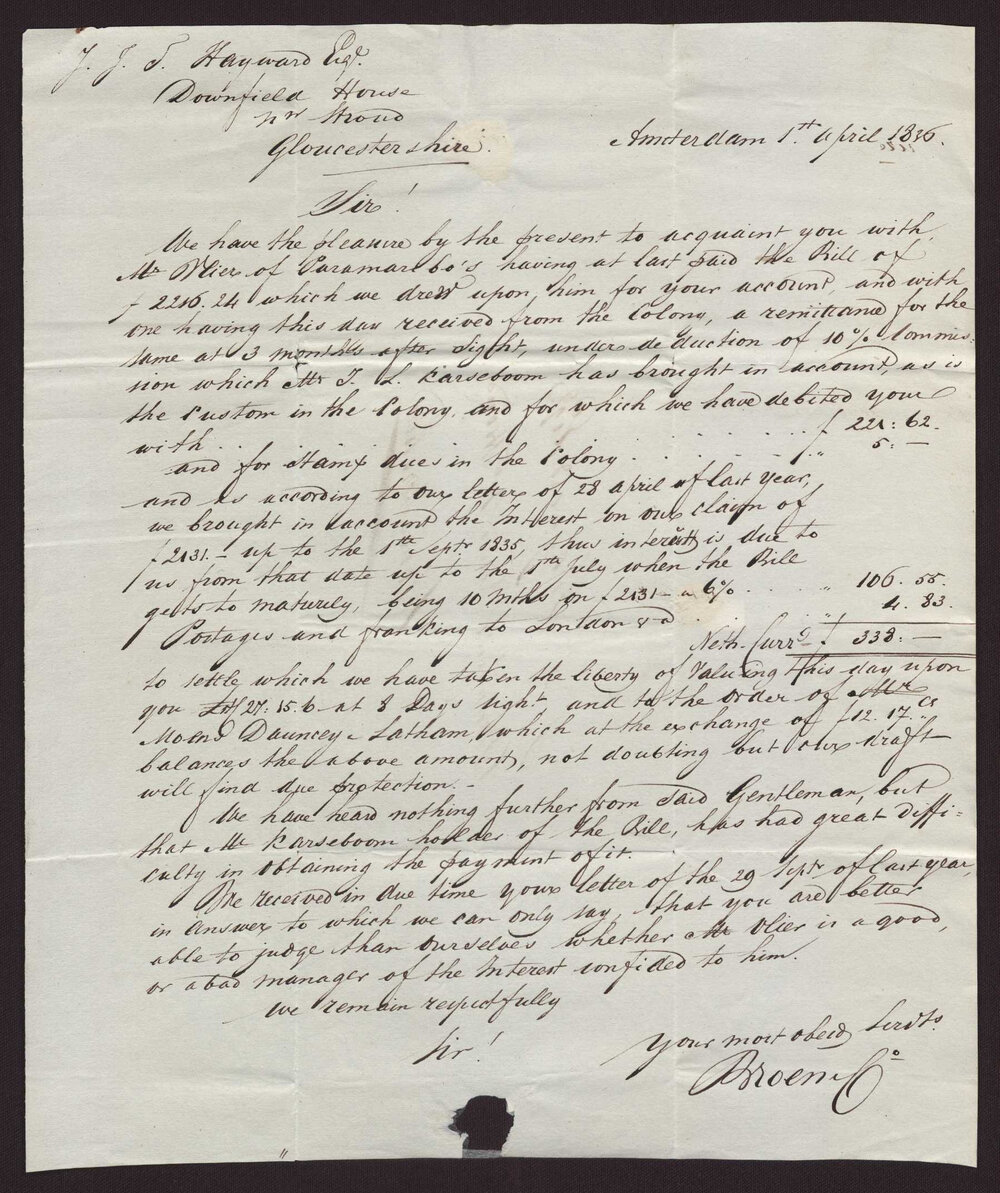 J. J. T. Hayward Esqr.
Downfield House
nr Stroud
Gloucestershire.
Amsterdam 1st. april 1836.
Sir!
We have the pleasure by the present to acquaint you with
Mr Vlier of Paramaribo's having at last paid the Bill of
f 2216.24 which we drew upon him for your account, and with
one having this day received from the Colony, a remittance for the
same at 3 months after Sight, under deduction of 10% Commis-
sion which Mr J. L. Karseboom has brought in account, as is
the custom in the Colony, and for which we have debited your
with . . . . . . . . . . f 221: 62.
and for Stamp dues in the Colony . . . . . . " 5: —
and as according to our letter of 28 april of last year,
we brought in account the Interest on our claim of
f 2131.— up to the 1th Septr 1835, thus interest is due to
us from that date up to the 1th July when the Bill
gets to maturity, being 10 mths on f 2131— a 6% . . . . " 106. 55.
Postages and franking to London &a . . " 4. 83.
Neth. Curr. f 333: —
to settle which we have taken the liberty of Valuing this day upon
you LSt 27: 15. 6 at 8 Days sight, and to the order of Mr
Moens Dauncey & Latham, which at the exchange of f 12. 17. Cs
balances the above amount, not doubting but our draft
will find due protection.—
We have heard nothing further from said Gentleman, but
that Mr Karseboom holder of the Bill, has had great diffi=
culty in obtaining the payment of it.
We received in due time your letter of the 29 Septr of last year,
in answer to which we can only say, that you are better
able to judge than ourselves whether Mr Vlier is a good,
or a bad manager of the Interest confided to him.
We remain respectfully
Sir!
Your most obedt Servts.
Broen & Co